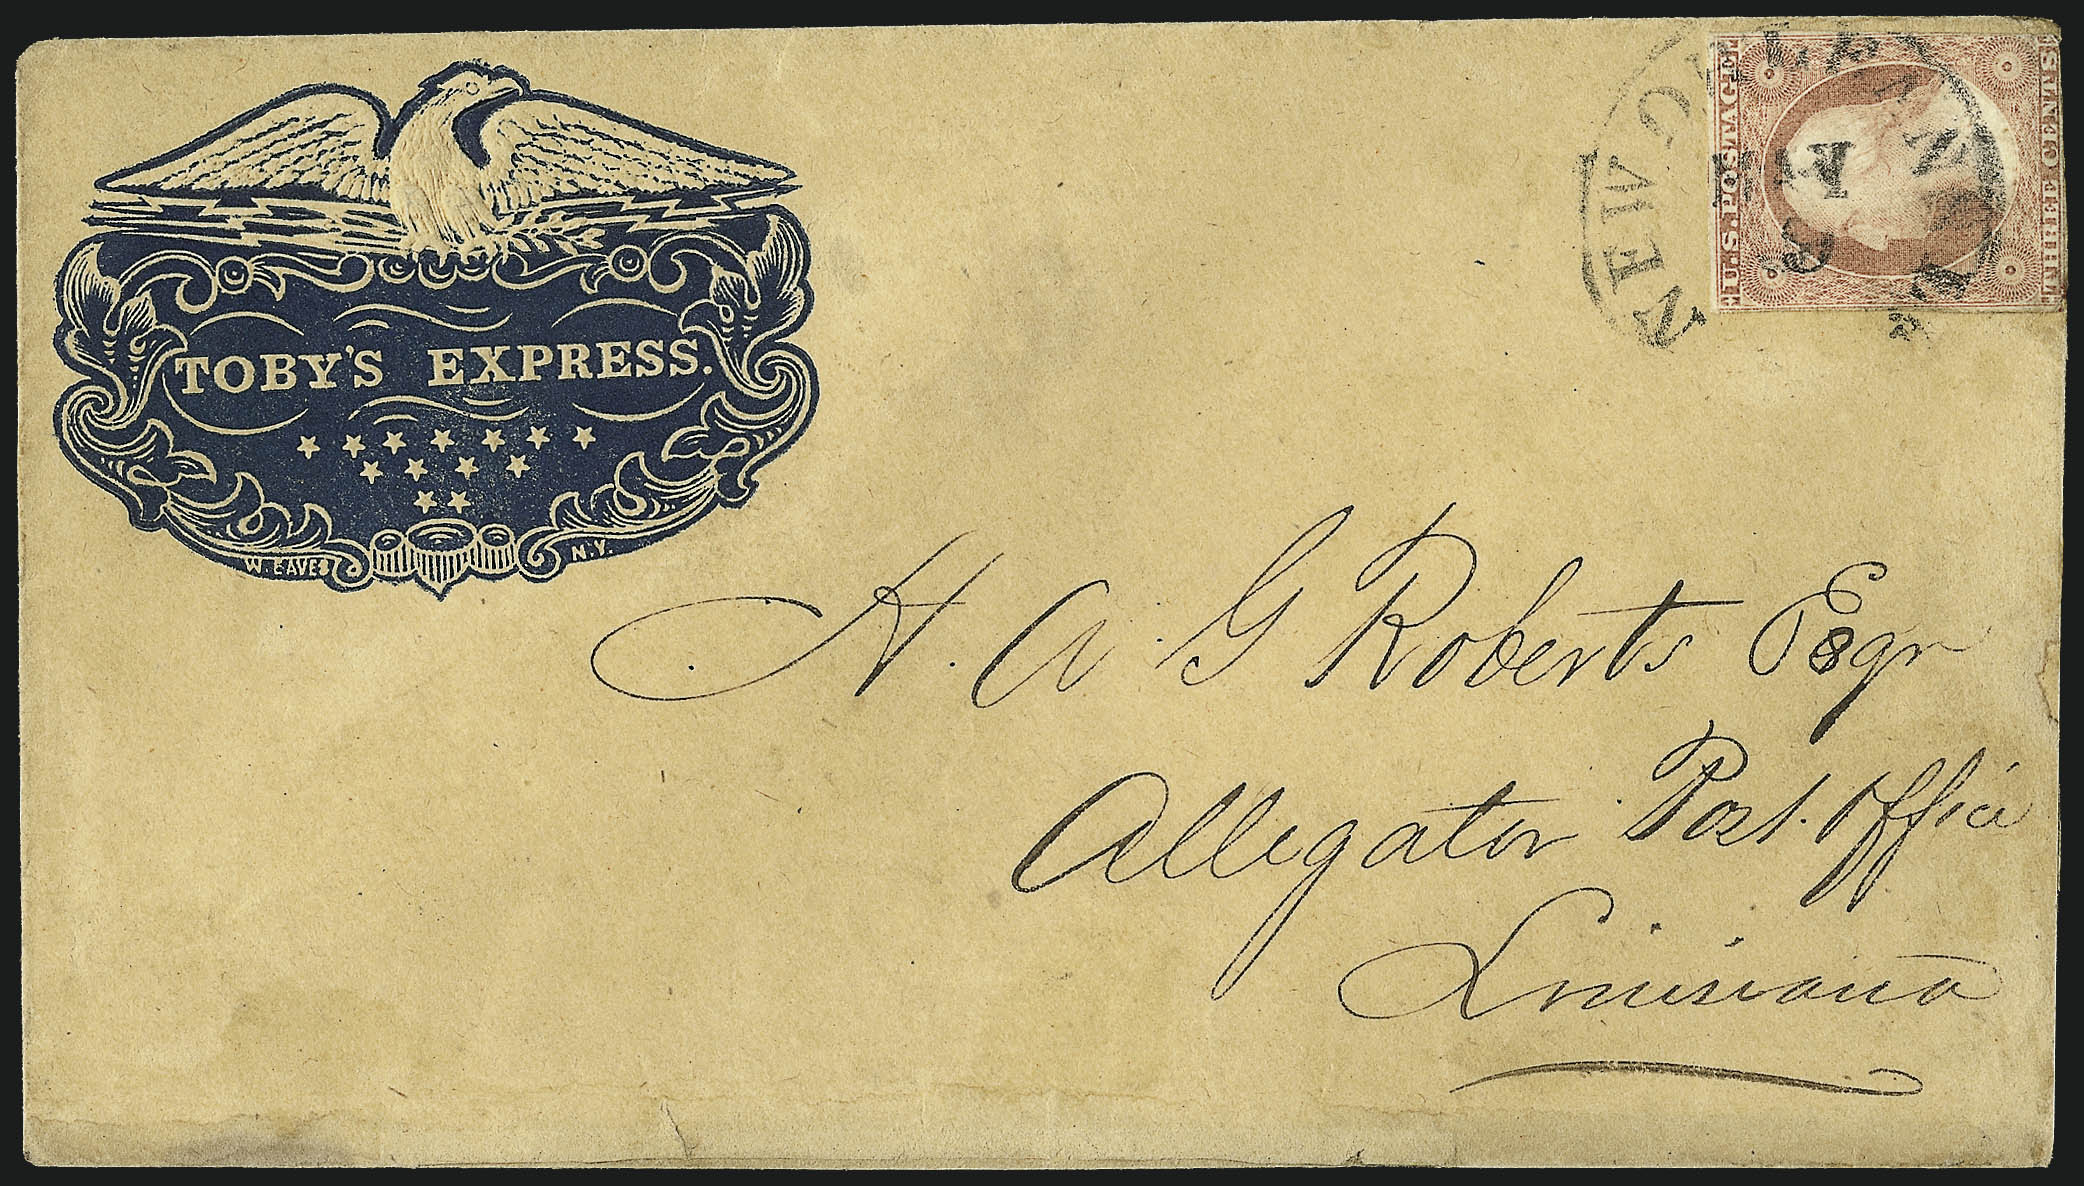 TOBY'S EXPRESS.
W. EAVES N.Y.
U.S. POSTAGE
THREE CENTS
NEW ORLEANS
MAY
8
H. A. G Roberts Esqr
Alligator Post. Office
Louisiana